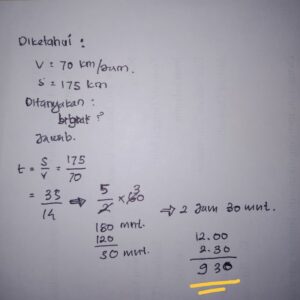 Diketahui :
V = 70 km/jam.
S = 175 km
Ditanyakan :
Jawab.
t = S/V = 175/70
= 35/14 ⇒ 5/2 × 60 3 ⇒ 2 Jam 30 mnt.
180 mnt.
120
30 mnt.
12.00
2.30
9 30